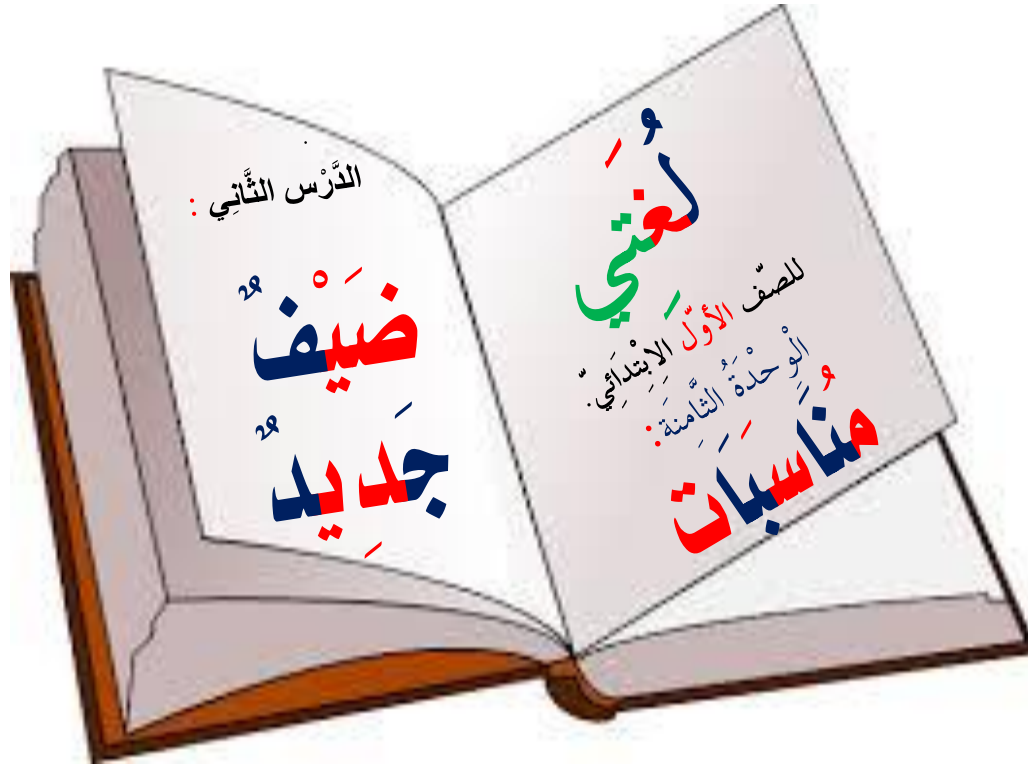 لُغَتِي
للصّف الأوّل الِابْتِدَائِيّ.
الْوِحْدَةُ الثَّامِنَة:
مُنَاسَبَات
الدَّرْس الثَّانِي :
ضَيْفٌ
جَدِيدٌ